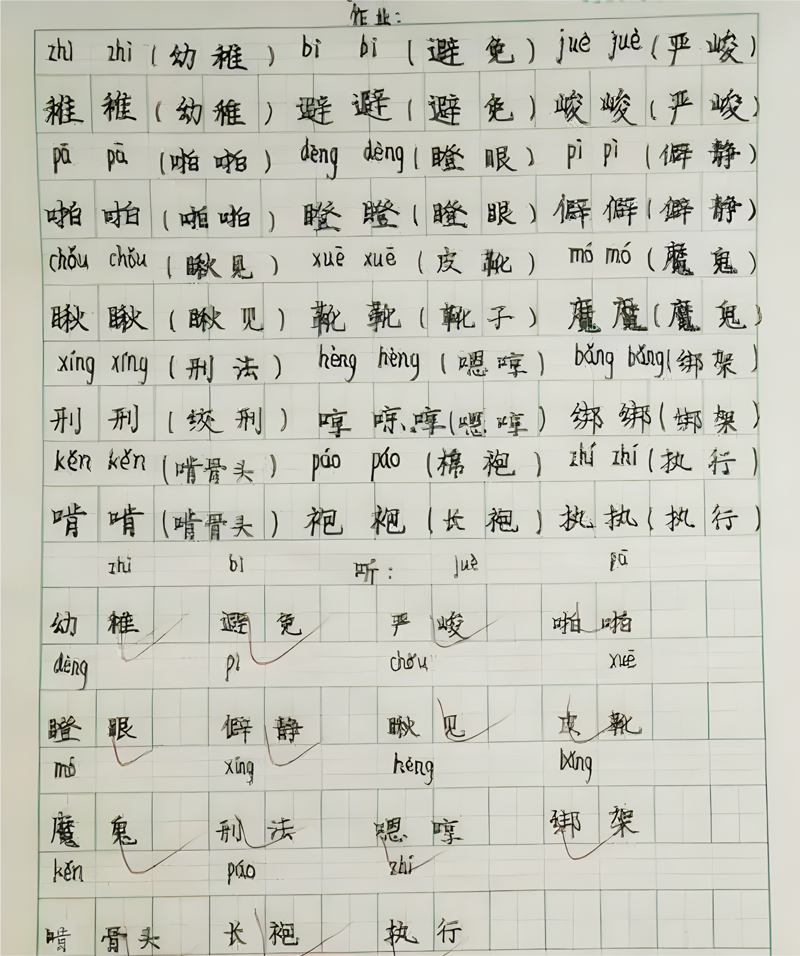 作业：
zhì zhì (幼稚) bì bì (避免) juè juè (严峻)
稚 稚 (幼稚) 避 避 (避免) 峻 峻 (严峻)
pā pā (啪啪) dèng dèng (瞪眼) pì pì (僻静)
啪 啪 (啪啪) 瞪 瞪 (瞪眼) 僻 僻 (僻静)
chǒu chǒu (瞅见) xuē xuē (皮靴) mó mó (魔鬼)
瞅 瞅 (瞅见) 靴 靴 (靴子) 魔 魔 (魔鬼)
xíng xíng (刑法) hèng hèng (嗯哼) bǎng bǎng (绑架)
刑 刑 (绞刑) 哼 哼 哼 (嗯哼) 绑 绑 (绑架)
kěn kěn (啃骨头) páo páo (棉袍) zhí zhí (执行)
啃 啃 (啃骨头) 袍 袍 (长袍) 执 执 (执行)
zhì bì 听： juè pā
幼稚 避免 严峻 啪啪
dèng pì chǒu xuē
瞪眼 僻静 瞅见 皮靴
mó xíng hèng bǎng
魔鬼 刑法 嗯哼 绑架
kěn páo zhí
啃骨头 长袍 执行